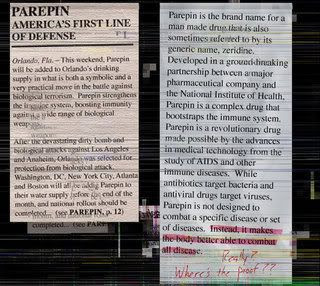 PAREPIN
AMERICA'S FIRST LINE
OF DEFENSE
Orlando, Fla. – This weekend, Parepin
will be added to Orlando's drinking
supply in what is both a symbolic and a
very practical move in the battle against
biological terrorism. Parepin strengthens
the immune system, boosting immunity
against a wide range of biological
weapons.
After the devastating dirty bomb and
biological attacks against Los Angeles
and Anaheim, Orlando was selected for
protection from biological attack.
Washington, DC, New York City, Atlanta
and Boston will all be adding Parepin to
their water supply before the end of the
month, and national rollout should be
completed... (see PAREPIN, p. 12)
completed... (see PARE
Parepin is the brand name for a
man made drug that is also
sometimes referred to by its
generic name, zeridine.
Developed in a ground-breaking
partnership between a major
pharmaceutical company and
the National Institute of Health,
Parepin is a complex drug that
bootstraps the immune system.
Parepin is a revolutionary drug
made possible by the advances
in medical technology from the
study of AIDS and other
immune diseases. While
antibiotics target bacteria and
antiviral drugs target viruses,
Parepin is not designed to
combat a specific disease or set
of diseases. Instead, it makes
the body better able to combat
all disease.
Really?
Where's the proof??